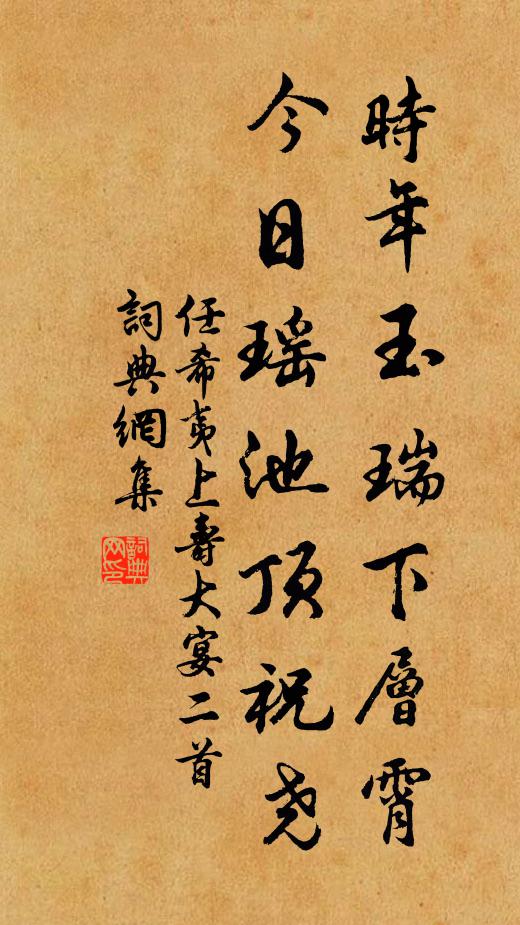 時年玉瑞下層霄
今日瑶池頂祝尧
任希夷上壽大宴二首
詞典網集
詞典网印